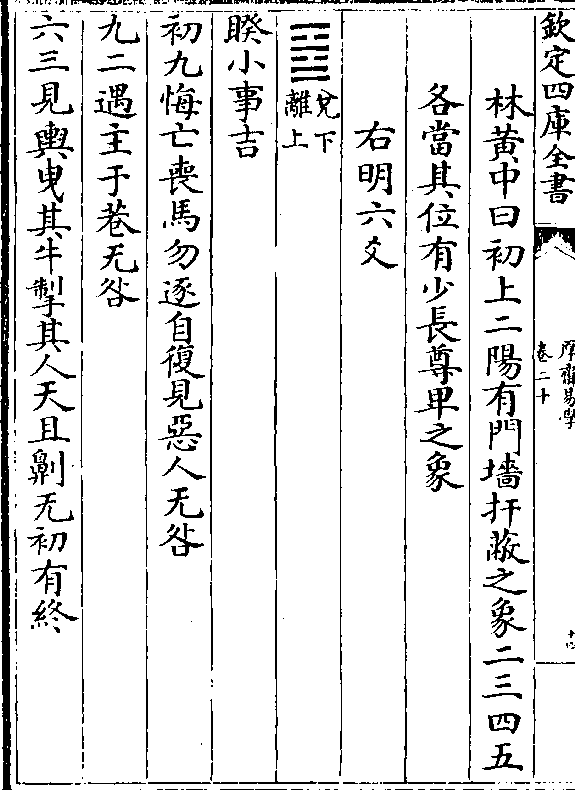 欽定四庫全書
厚齋易學
卷二十
林黃中曰初上二陽有門墻扞蔽之象二三四五
各當其位有少長尊卑之象
右明六爻
䷥
兌下
離上
睽小事吉
初九悔亡喪馬勿逐自復見惡人无咎
九二遇主于巷无咎
六三見輿曳其牛掣其人天且劓无初有終